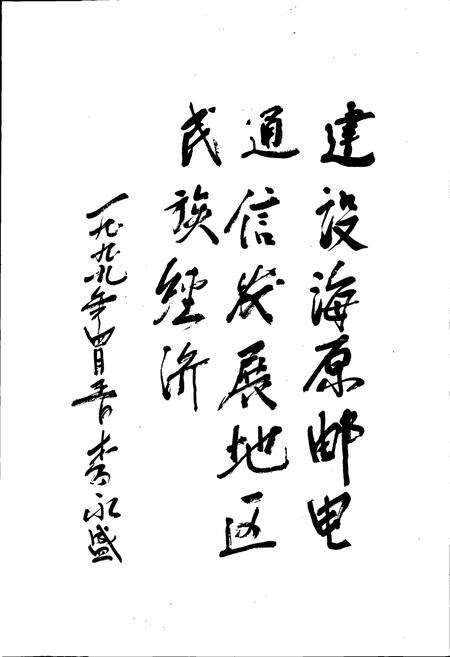 建设海原邮电
通信发展地区
民族經济
一九九九年四月 永盛